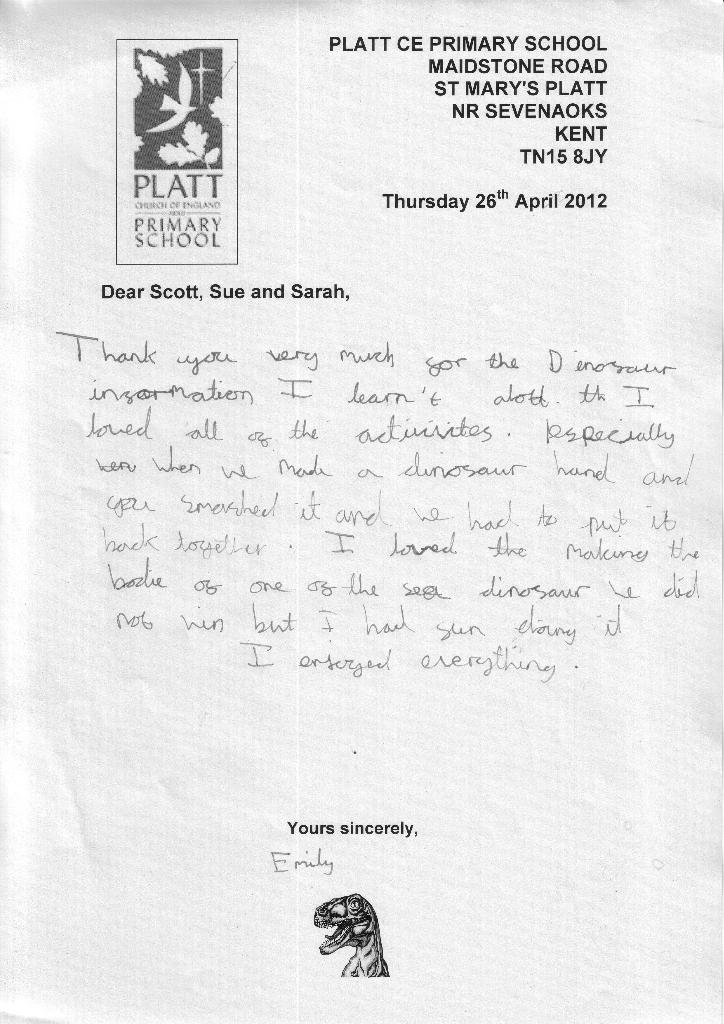 PLATT CE PRIMARY SCHOOL
MAIDSTONE ROAD
ST MARY'S PLATT
NR SEVENAOKS
KENT
TN15 8JY
PLATT
CHURCH OF ENGLAND
PRIMARY
SCHOOL
Thursday 26th April 2012
Dear Scott, Sue and Sarah,
Thank you very much for the Dinosaur
information I learn't alott. th I
loved all of the activites. Especially
when we made a dinosaur hand and
you smashed it and we had to put it
back together. I loved the making the
bodie of one of the sea dinosaur we did
not win but I had fun doing it
I enjoyed everything.
Yours sincerely,
Emily